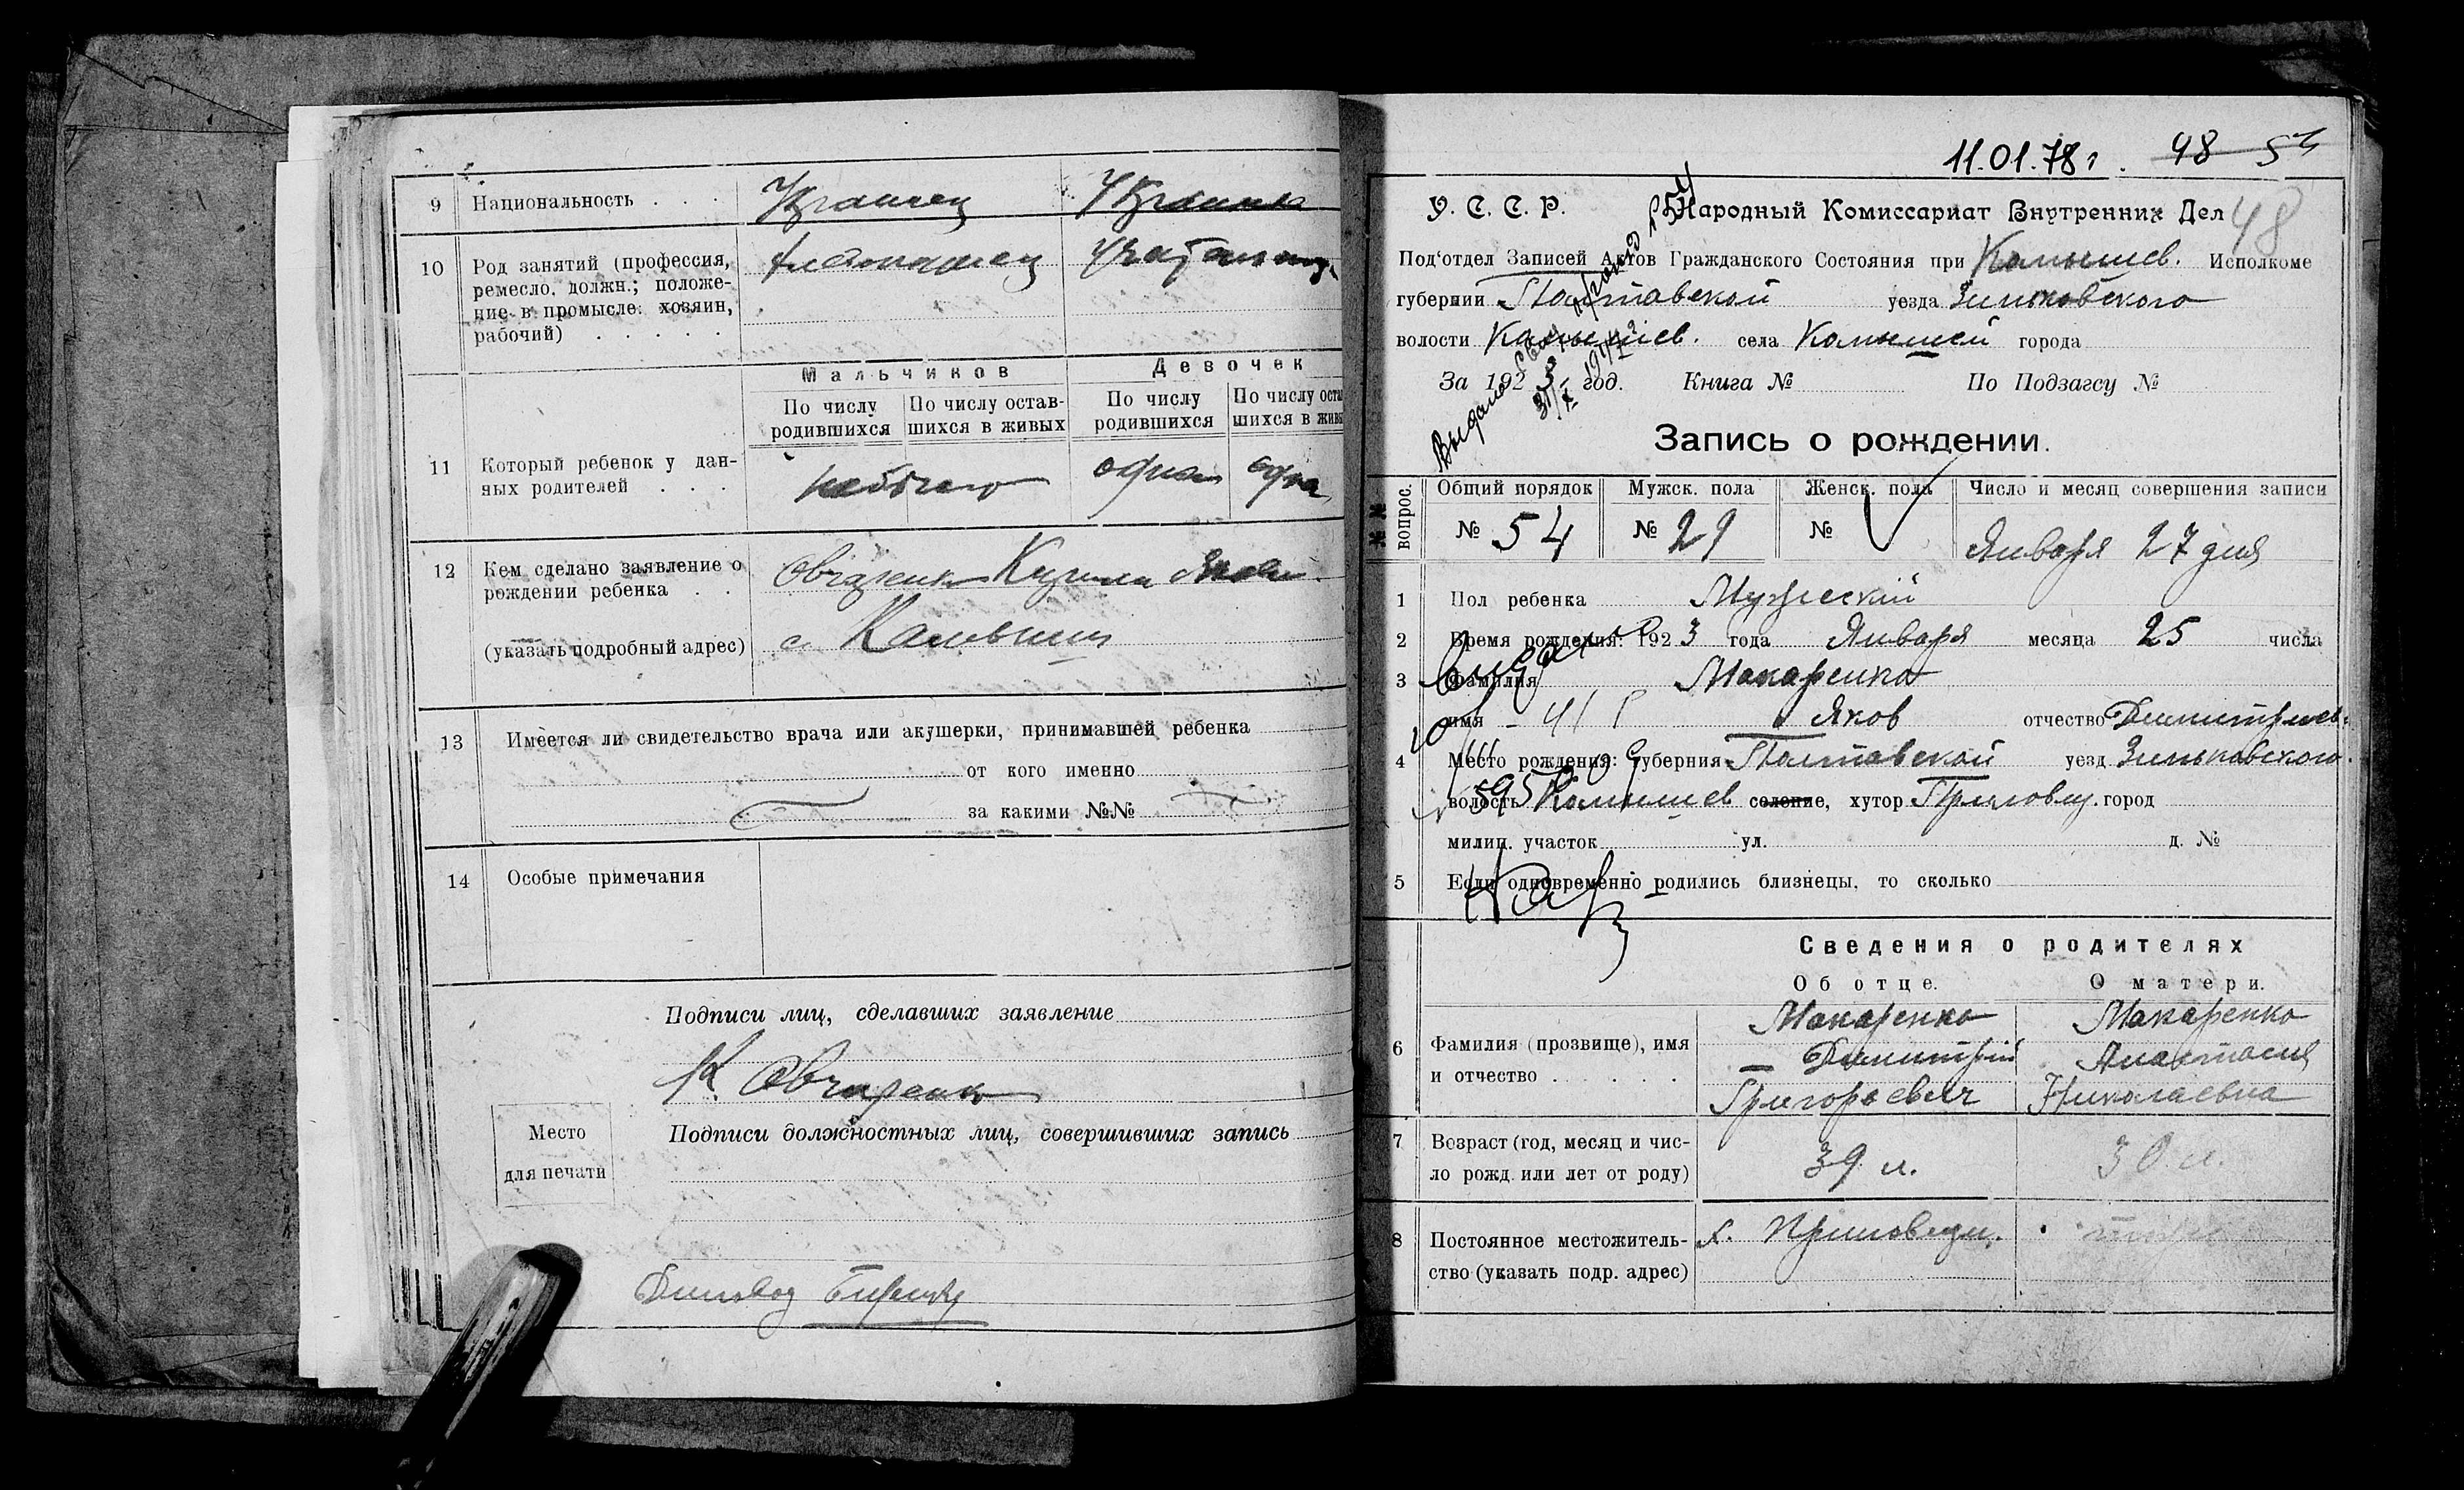 9 Национальность . . . Украинец Украинка
10 Род занятий (профессия, хлебопашец
ремесло, должн.; положе-
ние в промысле: хозяин,
рабочий) . . . . .
Мальчиков Девочек
По числу родившихся По числу остав-шихся в живых По числу родившихся По числу оста шихся в живы
11 Который ребенок у дан- небыло одна одна
ных родителей . . .
12 Кем сделано заявление о Овчаренко Кузьма
рождении ребенка . .
(указать подробный адрес) с.
13 Имеется ли свидетельство врача или акушерки, принимавшей ребенка
от кого именно
за какими №№
14 Особые примечания
Подписи лиц, сделавших заявление
К Овчаренко
Место
для печати
Подписи должностных лиц, совершивших запись
11.01.78г. 48 54
У. С. С. Р. Народный Комиссариат Внутренних Дел 48
Под‘отдел Записей Актов Гражданского Состояния при Камышев. Исполкоме
губернии Полтавской уезда Зиньковского
волости Камышев. села Камышей города
За 1923 год. Книга № По Подзагсу №
Запись о рождении.
№№ вопрос.
Общий порядок Мужск. пола Женск. пола Число и месяц совершения записи
№ 54 № 29 № Января 27 дня
1 Пол ребенка Мужеский
2 Время рождения: 1923 года Января месяца 25 числа
3 Фамилия Макаренко
имя Яков отчество Димитриев.
4 Место рождения: губерния Полтавской уезд Зиньковского.
волость Камышев селение, хутор город
милиц. участок ул. д. №
5 Если одновременно родились близнецы, то сколько
Сведения о родителях
Об отце. О матери.
Макаренко Макаренко
6 Фамилия (прозвище), имя Димитрий Анастасия
и отчество . . . . . Григорьевич Николаевна
7 Возраст (год, месяц и чис- 39 л. 30 л.
ло рожд. или лет от роду)
8 Постоянное местожитель- х.
ство (указать подр. адрес)